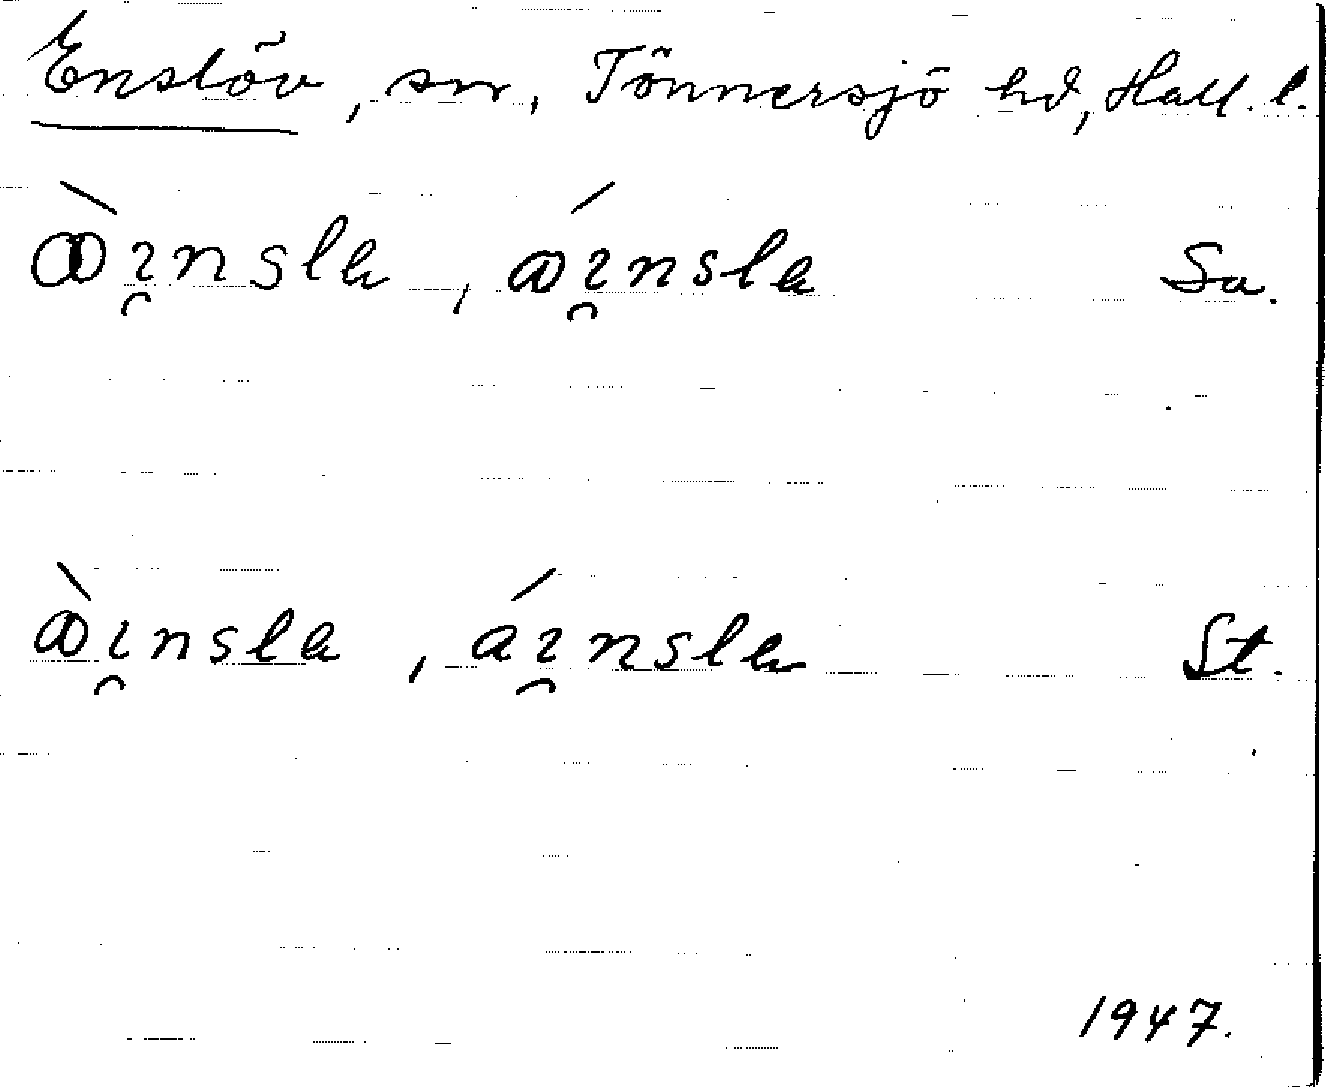 Enslöv, sn, Tönnersjö hd, Hall. l.
æ̀ı̯nsla, ǽı̯nsla Sa.
æ̀ı̯nsla, áı̯nsla St.
1947.